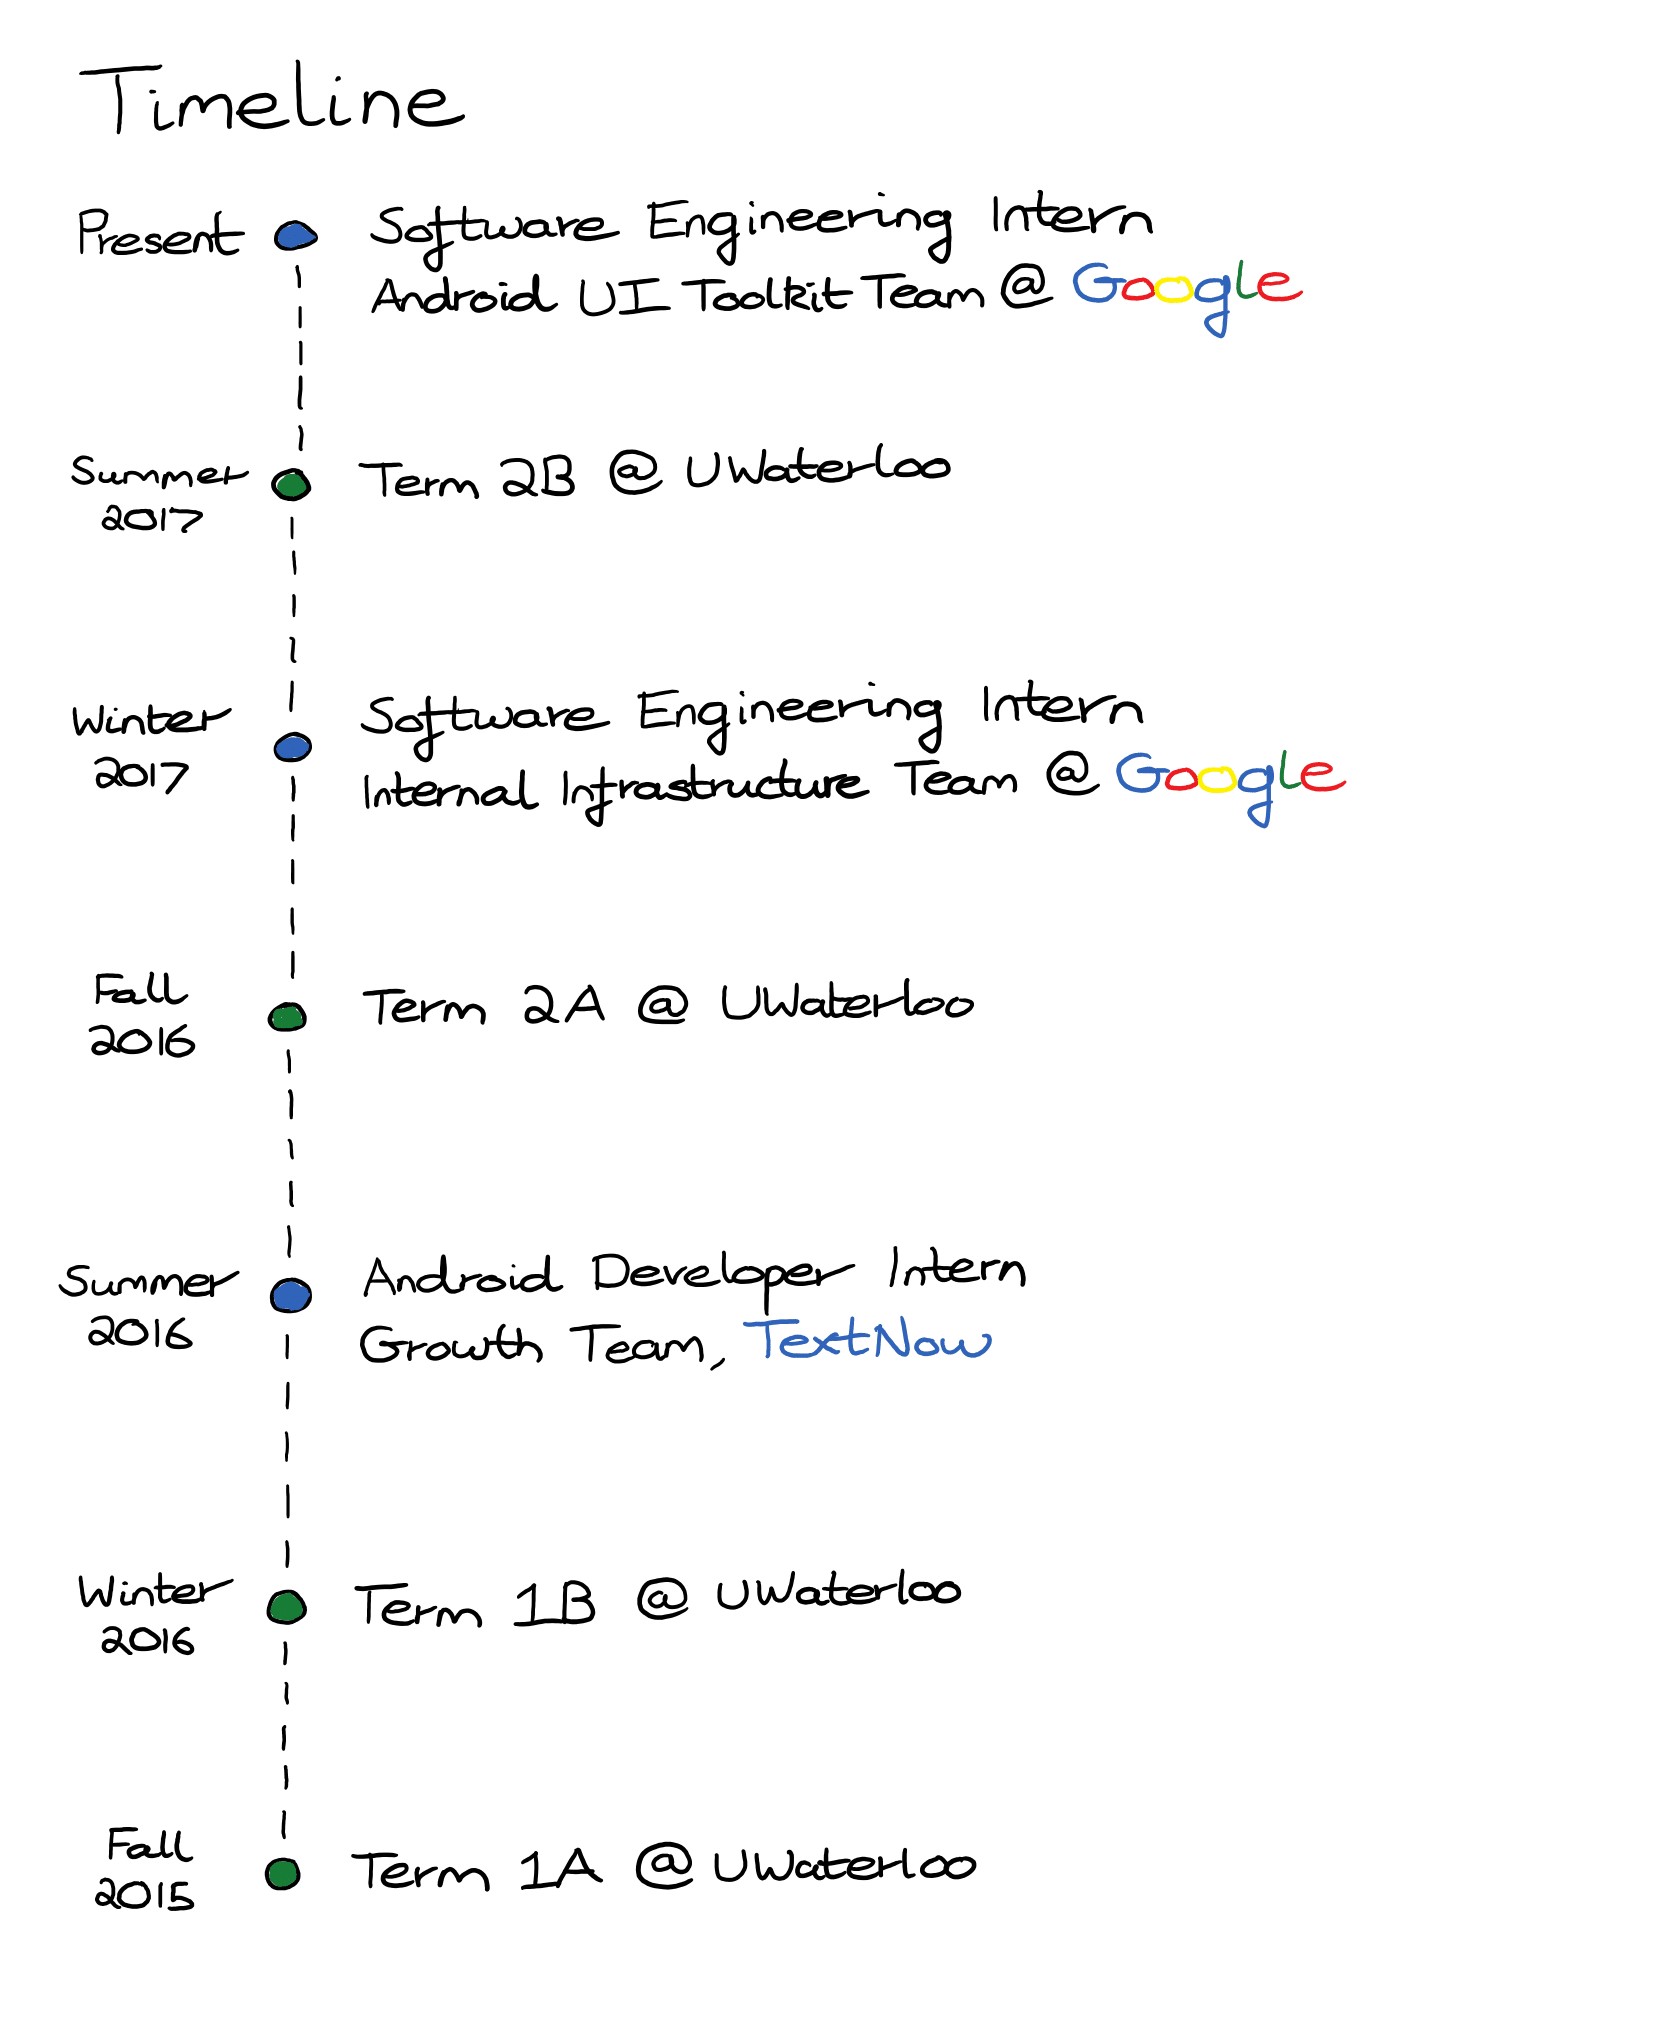 Timeline
Present
Software Engineering Intern
Android UI Toolkit Team @ Google
Summer
2017
Term 2B @ UWaterloo
Winter
2017
Software Engineering Intern
Internal Infrastructure Team @ Google
Fall
2016
Term 2A @ UWaterloo
Summer
2016
Android Developer Intern
Growth Team, TextNow
Winter
2016
Term 1B @ UWaterloo
Fall
2015
Term 1A @ UWaterloo